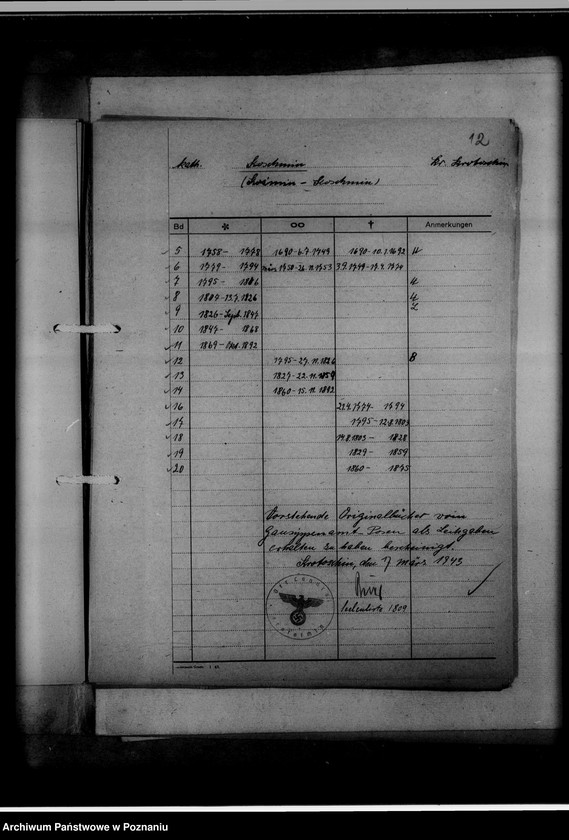 12
kath. Koschmin Kr. Krotoschin
(Koźmin - Koschmin)
Bd * ∞ † Anmerkungen
5 1758 - 1778 1690 - 6.7.1749 1690 - 10.1.1692 4
6 1779 - 1794 März 1750 - 26.11.1753 3.9.1749 - 17.4.1774
7 1795 - 1806 4
8 1807 - 13.7.1826 4
9 1826 - Sept. 1847
10 1847 - 1868
11 1869 - Okt. 1892
12 1795 - 27.11.1826 B
13 1827 - 22.11.1859
14 1860 - 15.11.1892
16 23.4.1774 - 1794
17 1795 - 12.8.1803
18 14.8.1803 - 1828
19 1829 - 1859
20 1860 - 1875
Vorstehende Originalbücher vom
Gausippenamt Posen als Leihgaben
erhalten zu haben bescheinigt.
Krotoschin, den 7 März 1943
Archiwum Państwowe w Poznaniu